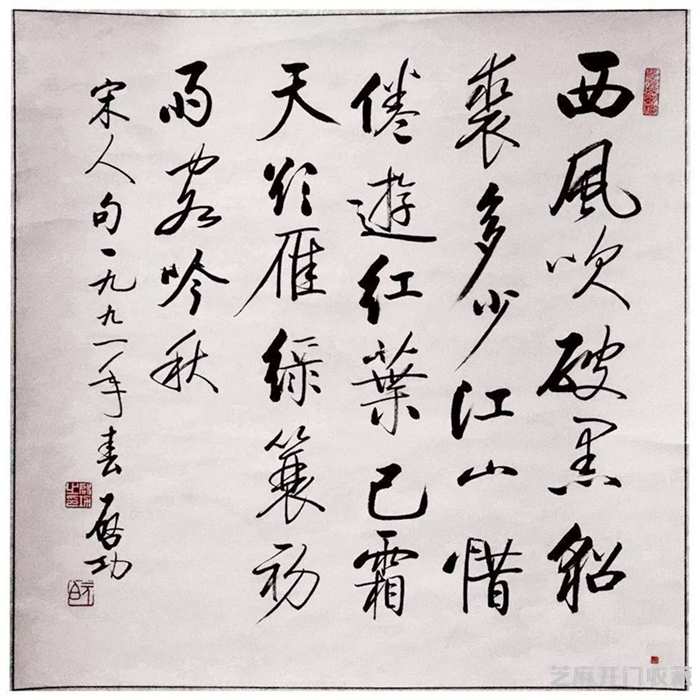 西風吹破黑貂
裘多少江山惜
倦遊红葉已霜
天欲雁绿蓑初
雨客吟秋
宋人句一九九一年春启功
芝麻开门收藏